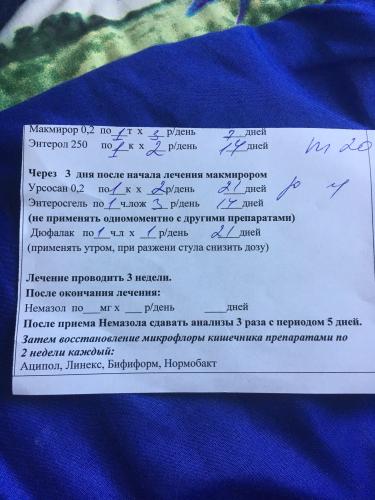 Макмирор 0,2 по 1 т х 3 р/день 7 дней
Энтерол 250 по 1 к х 2 р/день 14 дней
Через 3 дня после начала лечения макмирором
Урсосан 0,2 по 1 к х 2 р/день 21 дней
Энтеросгель по 1 ч.лож х 3 р/день 14 дней
(не применять одномоментно с другими препаратами)
Дюфалак по 1 ч.л х 1 р/день 21 дней
(применять утром, при разжени стула снизить дозу)
Лечение проводить 3 недели.
После окончания лечения:
Немазол по___мг х ___ р/день ____дней
После приема Немазола сдавать анализы 3 раза с периодом 5 дней.
Затем восстановление микрофлоры кишечника препаратами по
2 недели каждый:
Аципол, Линекс, Бифиформ, Нормобакт